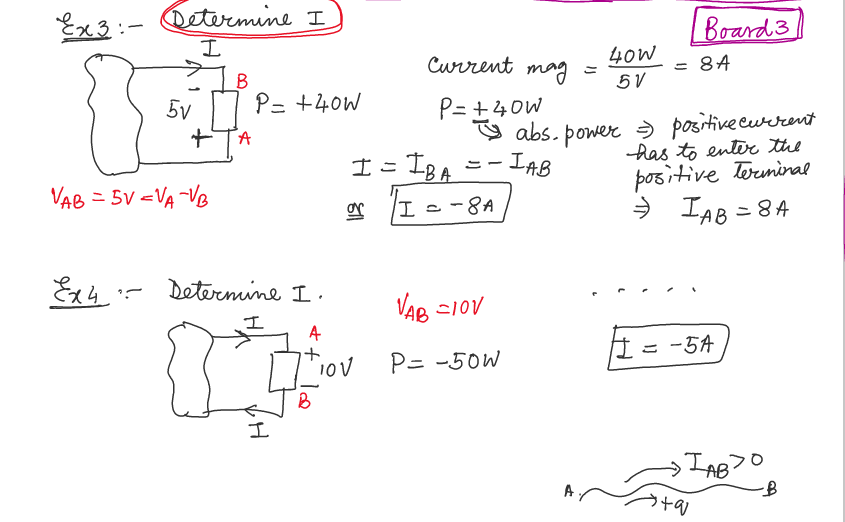 Ex3 :- Determine I
Board 3
I
B
-
5V
P= +40W
+
A
VAB = 5V = VA -VB
Current mag = 40W / 5V = 8A
P= +40W
abs. power ⇒ positive current
has to enter the
positive Terminal
I = IBA = - IAB
or I = -8A
⇒ IAB = 8A
Ex4 :- Determine I.
VAB =10V
. . . . .
I
A
+
10V
P= -50W
I = -5A
-
B
I
IAB >0
A
B
+q